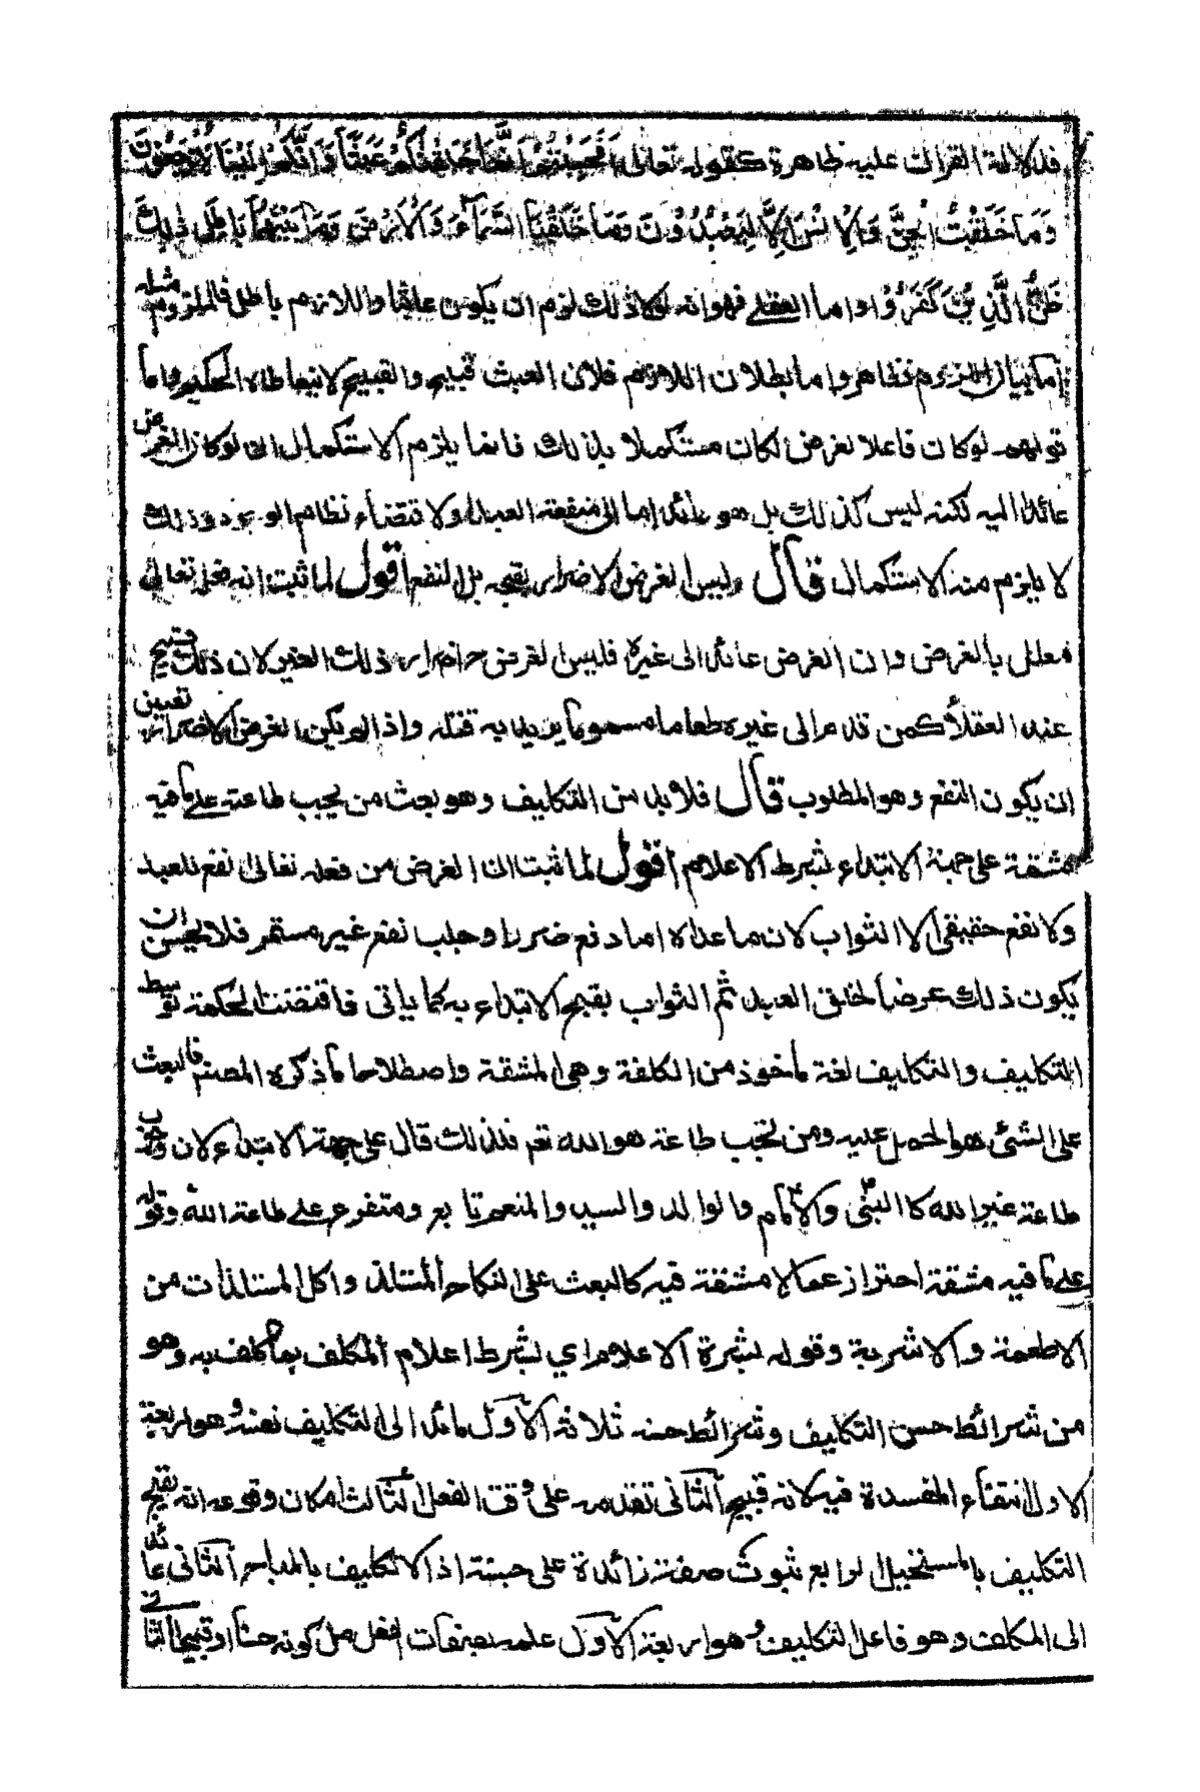 فدلالة القران عليه ظاهرة كقوله تعالى اَفَحَسِبْتُمْ اَنَّمَا خَلَقْنٰكُمْ عَبَثًا وَاَنَّكُمْ اِلَيْنَا لَا تُرْجَعُوْنَ
وَمَا خَلَقْتُ الْجِنَّ وَالْاِنْسَ اِلَّا لِيَعْبُدُوْنَ وَمَا خَلَقْنَا السَّمَآءَ وَالْاَرْضَ وَمَا بَيْنَهُمَا بَاطِلًا ذٰلِكَ
ظَنُّ الَّذِيْنَ كَفَرُوْا واما العقلي فهو انه لولا ذلك لزم ان يكون عابثا واللازم باطل فالملزوم مثله
اما بيان اللزوم فظاهر واما بطلان اللازم فلان العبث قبيح والقبيح لا يتعاطاه الحكيم واما
قولهم لو كان فاعلا لغرض لكان مستكملا بذلك فانما يلزم الاستكمال ان لو كان الغرض
عائدا اليه لكنه ليس كذلك بل هو عائد اما الى منفعة العبد او لاقتضاء نظام الوجود وذلك
لا يلزم منه الاستكمال قال وليس الغرض الاضرار لقبحه بل النفع اقول لما ثبت انه فعله تعالى
معلل بالغرض وان الغرض عائد الى غيره فليس الغرض ح اضرار ذلك الغير لان ذلك قبيح
عند العقلاء كمن قدم الى غيره طعاما مسموما يريد به قتله واذا لم يكن الغرض الاضرار تعين
ان يكون النفع وهو المطلوب قال فلا بد من التكليف وهو بعث من يجب طاعته على ما فيه
مشقة على جهة الابتداء بشرط الاعلام اقول لما ثبت ان الغرض من فعله تعالى نفع العبد
ولا نفع حقيقي الا الثواب لان ما عداه اما دفع ضرر او جلب نفع غير مستمر فلا يحسن ان
يكون ذلك غرضا لخلق العبد ثم الثواب يقبح الابتداء به كما ياتي فاقتضت الحكمة توسط
التكليف والتكليف لغة ماخوذ من الكلفة وهي المشقة واصطلاحا ما ذكره المصنف فالبعث
على الشئ هو الحمل عليه ومن تجب طاعته هو الله تعم فلذلك قال على جهة الابتداء لان وجوب
طاعة غير الله كالنبي والامام والوالد والسيد والمنعم تابع ومتفرع على طاعة الله وقوله
على ما فيه مشقة احتراز عما لا مشقة فيه كالبعث على النكاح المستلذ واكل المستلذات من
الاطعمة والاشربة وقوله بشرط الاعلام اي بشرط اعلام المكلف بما كلف به وهو
من شرائط حسن التكليف وشرائط حسنه ثلاثة الاول عائد الى التكليف نفسه وهو اربعة
الاول انتفاء المفسدة فيه لانه قبيح الثاني تقدمه على وقت الفعل الثالث امكان وقوعه لانه يقبح
التكليف بالمستحيل الرابع ثبوت صفة زائدة على حسنه اذ لا تكليف بالمباح الثاني عائد
الى المكلف وهو فاعل التكليف وهو اربعة الاول علمه بصفات الفعل من كونه حسنا او قبيحا الثاني